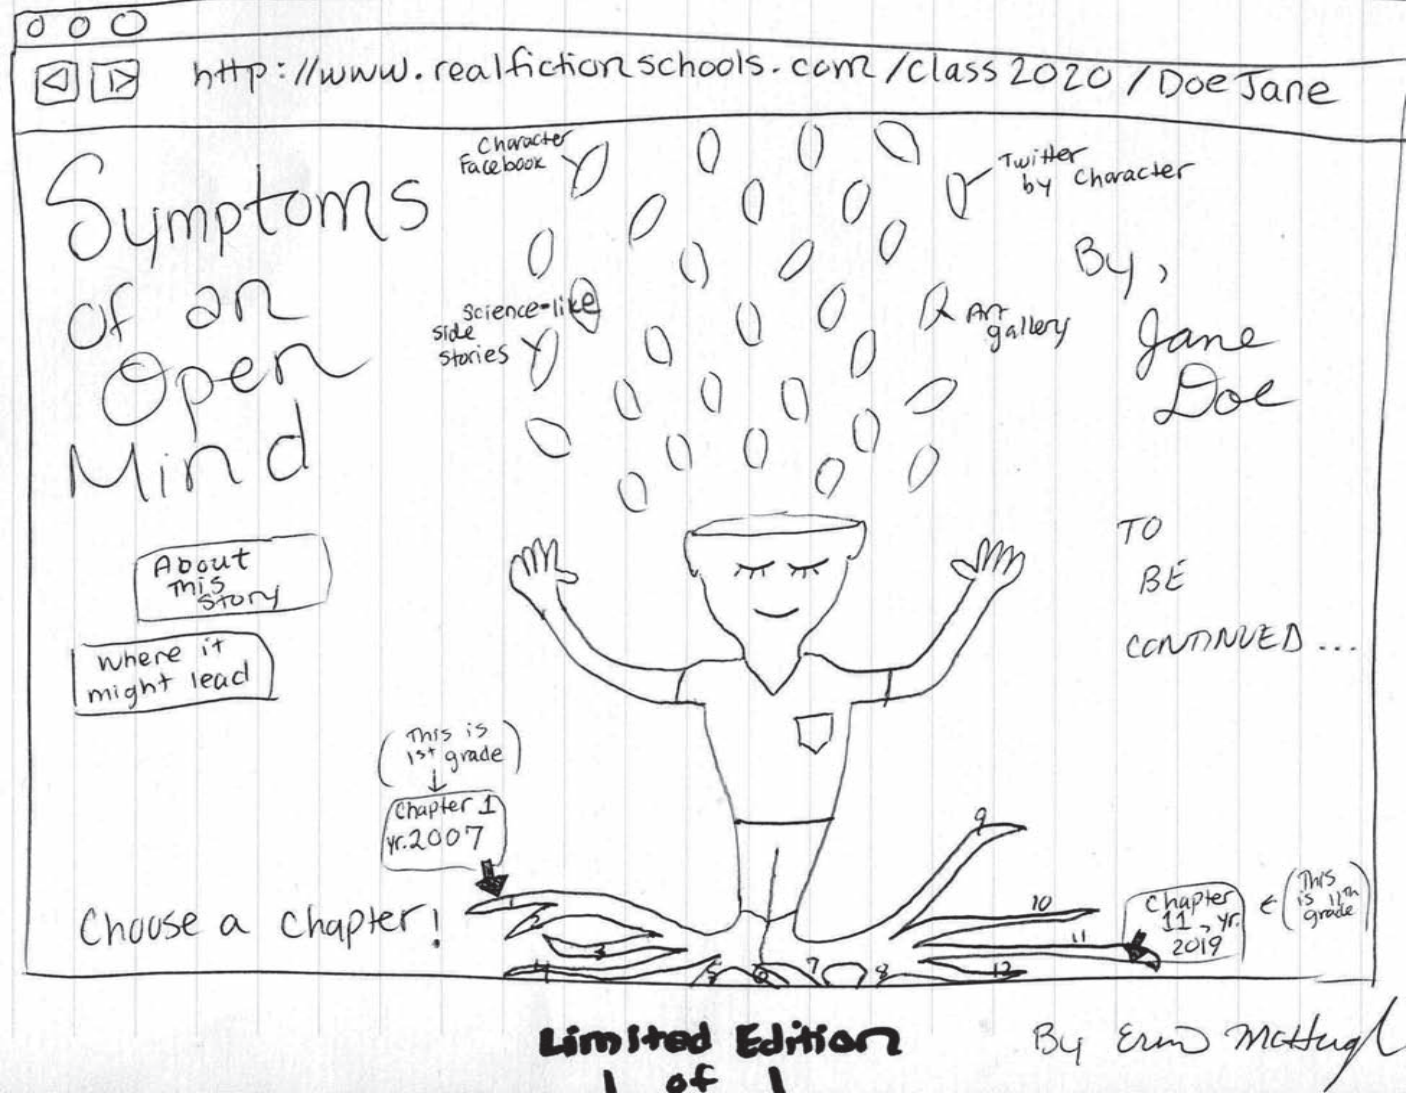 http://www.realfictionschools.com/class2020/DoeJane
Symptoms
of an
Open
Mind
Character
Facebook
Twitter
by Character
Science-like
side
stories
Art
gallery
By,
Jane
Doe
About
this
story
Where it
might lead
TO
BE
CONTINUED...
(This is
1st grade)
Chapter 1
yr. 2007
Choose a Chapter!
1
2
3
4
5
6
7
8
9
10
11
12
Chapter
11, yr.
2019
(This
is 11th
grade)
Limited Edition
1 of 1
By Erin McHugh